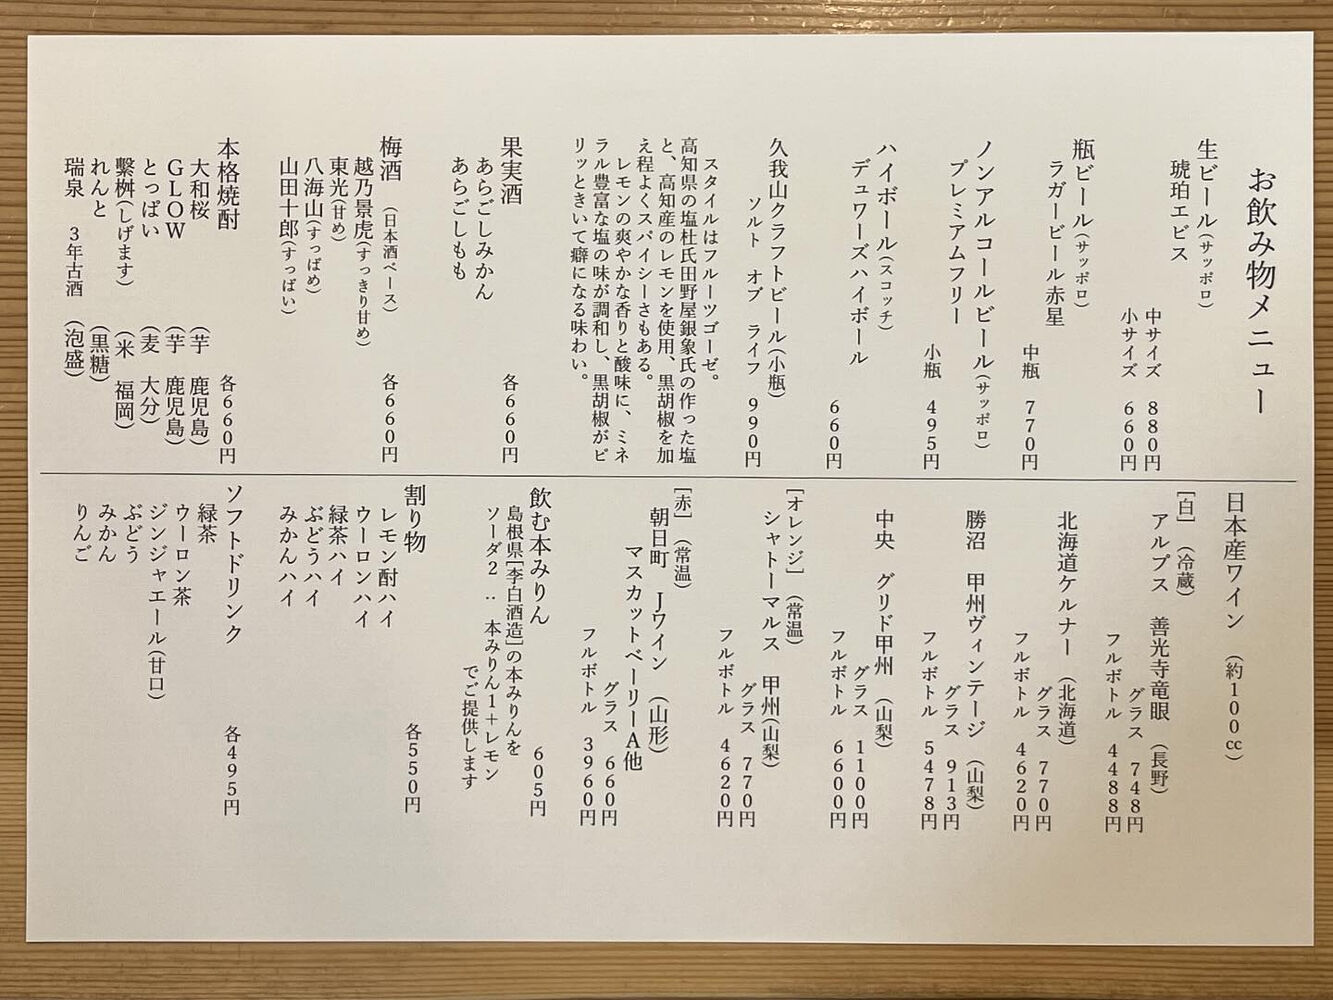 お飲み物メニュー
生ビール(サッポロ)
琥珀エビス
中サイズ 880円
小サイズ 660円
瓶ビール(サッポロ)
ラガービール赤星
中瓶 770円
ノンアルコールビール(サッポロ)
プレミアムフリー
小瓶 495円
ハイボール(スコッチ)
デュワーズハイボール
660円
久我山クラフトビール(小瓶)
ソルト オブ ライフ 990円
スタイルはフルーツゴーゼ。
高知県の塩杜氏田野屋銀象氏の作った塩
と、高知産のレモンを使用、黒胡椒を加
え程よくスパイシーさもある。
レモンの爽やかな香りと酸味に、ミネ
ラル豊富な塩の味が調和し、黒胡椒がピ
リッときいて癖になる味わい。
果実酒 各660円
あらごしみかん
あらごしもも
梅酒 (日本酒ベース) 各660円
越乃景虎(すっきり甘め)
東光(甘め)
八海山(すっぱめ)
山田十郎(すっぱい)
本格焼酎 各660円
大和桜 (芋 鹿児島)
GLOW (芋 鹿児島)
とっぱい (麦 大分)
繫桝(しげます) (米 福岡)
れんと (黒糖)
瑞泉 3年古酒 (泡盛)
日本産ワイン (約100cc)
[白] (冷蔵)
アルプス 善光寺竜眼 (長野)
グラス 748円
フルボトル 4488円
北海道ケルナー (北海道)
グラス 770円
フルボトル 4620円
勝沼 甲州ヴィンテージ (山梨)
グラス 913円
フルボトル 5478円
中央 グリド甲州 (山梨)
グラス 1100円
フルボトル 6600円
[オレンジ] (常温)
シャトーマルス 甲州(山梨)
グラス 770円
フルボトル 4620円
[赤] (常温)
朝日町 Jワイン (山形)
マスカットベーリーA他
グラス 660円
フルボトル 3960円
飲む本みりん 605円
島根県[李白酒造]の本みりんを
ソーダ2:本みりん1+レモン
でご提供します
割り物 各550円
レモン酎ハイ
ウーロンハイ
緑茶ハイ
ぶどうハイ
みかんハイ
ソフトドリンク 各495円
緑茶
ウーロン茶
ジンジャエール(甘口)
ぶどう
みかん
りんご